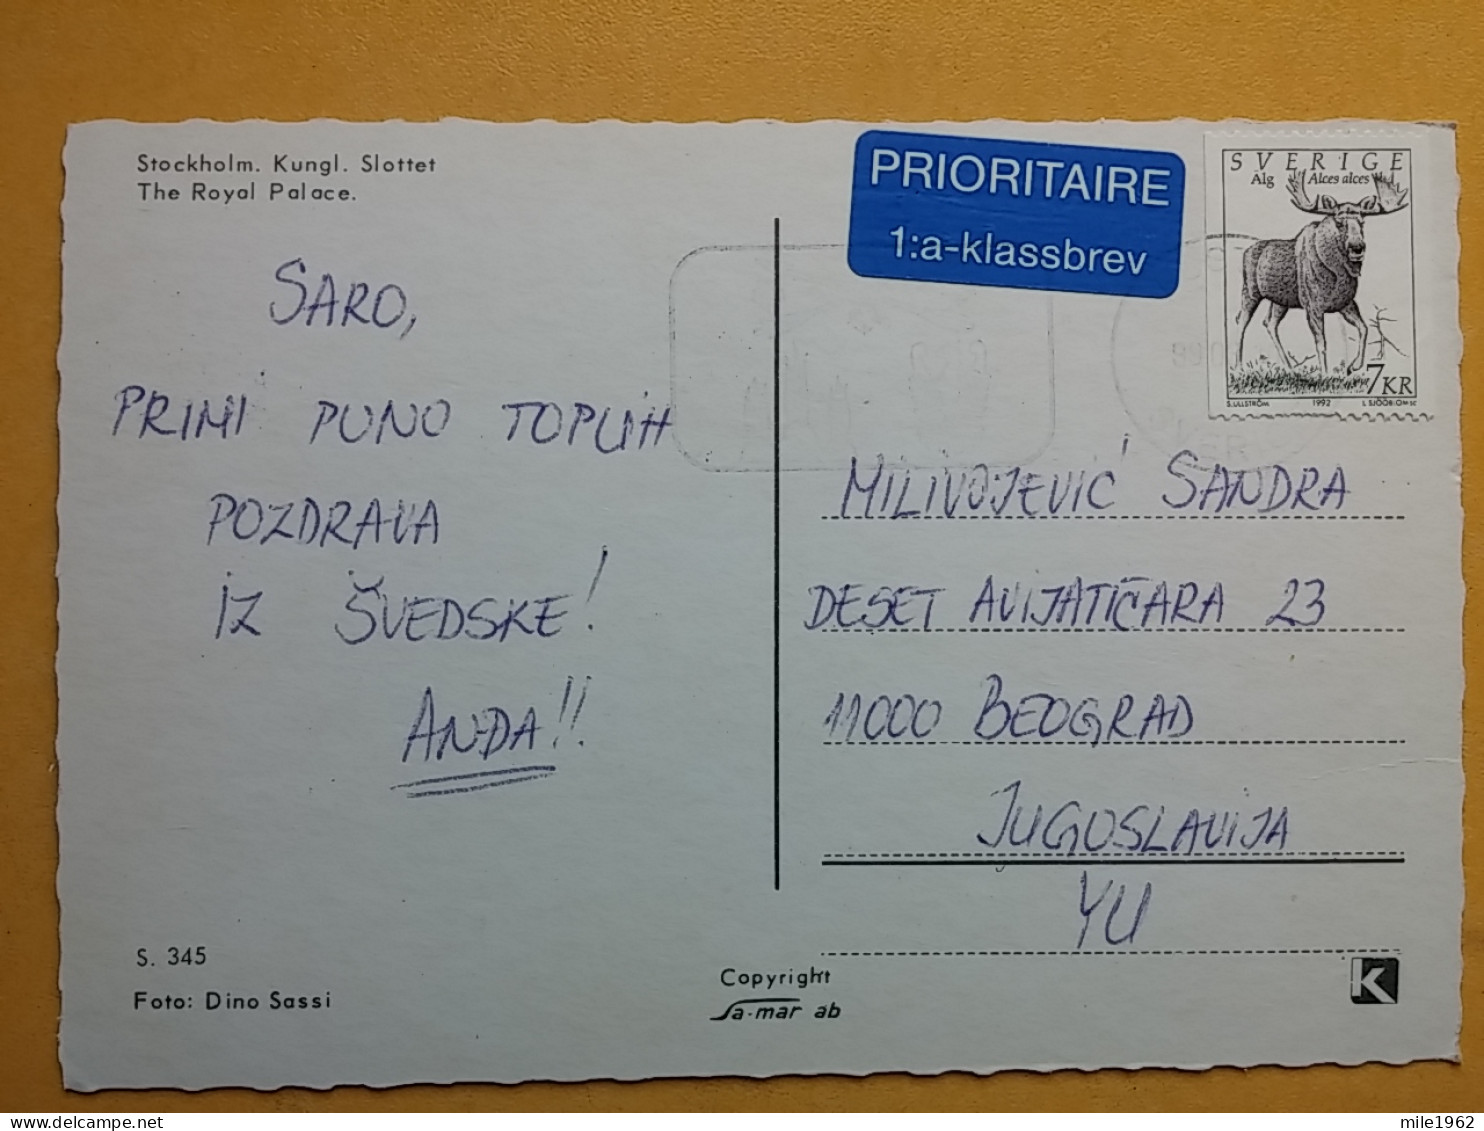 Stockholm. Kungl. Slottet
The Royal Palace.
PRIORITAIRE
1:a-klassbrev
SVERIGE
Älg Alces alces
7KR
S.ULLSTRÖM 1992
SARO,
PRIMI PUNO TOPLIH
POZDRAVA
IZ ŠVEDSKE!
ANĐA!!
MILIVOJEVIĆ SANDRA
DESET AVIJATIČARA 23
11000 BEOGRAD
JUGOSLAVIJA
YU
S. 345
Foto: Dino Sassi
Copyright
Sa-mar ab
K
mile1962